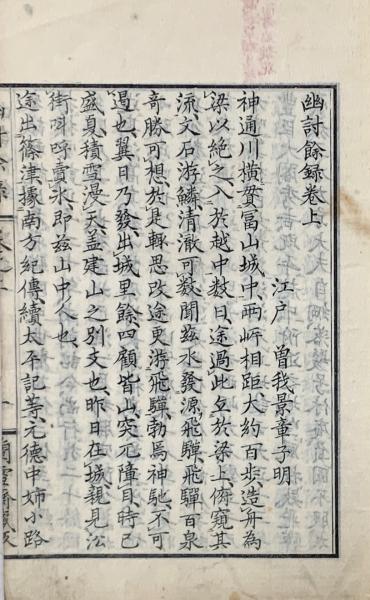 幽討餘録卷上
江戸　曽我景章子明
神通川横貫冨山城中、兩岸相距大約百歩、造舟為
梁以絶之、入於越中数日、途過此立於梁上、俯窺其
流、文石游鱗清澈可数、聞茲水發源飛騨、飛騨百泉
奇勝可想、於是輙思改途更游飛騨、勃焉神馳、不可
遏也、翼日乃發、出城里餘、四顧皆山、突兀障目、時已
盛夏、積雪漫天、盖建山之別支也、昨日在城親見沿
街呌呼賣氷、即茲山中人也、
途出篠津、據南方紀傳、續太平記䓁、元德中姉小路